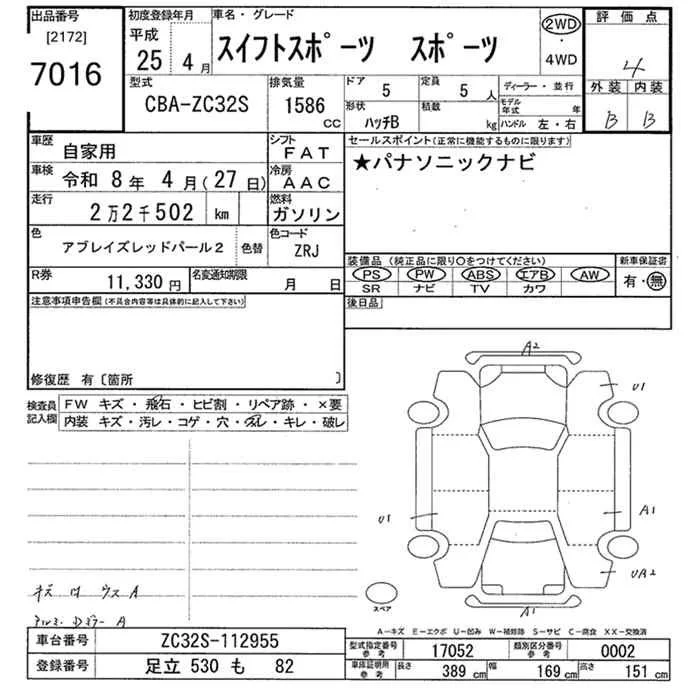 出品番号 初度登録年月 車名・グレード 2WD 評価点
[2172] 平成 ・ 4WD
7016 25 4月 スイフトスポーツ スポーツ 4
型式 排気量 ドア 5 定員 5人 ディーラー・並行 外装 内装
CBA-ZC32S 1586cc 形状 ハッチB 積載 kg モデル年式 年 B B
ハンドル 左・右
車歴 自家用 シフト FAT セールスポイント(正常に機能するものに限ります)
車検 令和 8年 4月(27日) 冷房 AAC ★パナソニックナビ
走行 2万2千502 km 燃料 ガソリン
色 アブレイズレッドパール2 色替 色コード ZRJ
装備品 (純正品に限り〇をつけてください) 新車保証書
R券 11,330円 名変通知期限 月 日 PS PW ABS エアB AW 有・無
SR ナビ TV カワ
注意事項申告欄(不具合内容等は具体的に記入して下さい) 後日品
修復歴 有〔箇所 〕
検査員記入欄 FW キズ・飛石・ヒビ割・リペア跡・×要
内装 キズ・汚レ・コゲ・穴・スレ・キレ・破レ
A2
U1
U1
A1
UA2
A1
スペア
A-キズ E-エクボ U-凹み W-補修跡 S-サビ C-腐食 XX-交換済
車台番号 ZC32S-112955
型式指定番号 参考 17052 類別区分番号 参考 0002
登録番号 足立 530 も 82
車庫証明用 参考 長さ 389cm 幅 169cm 高さ 151cm